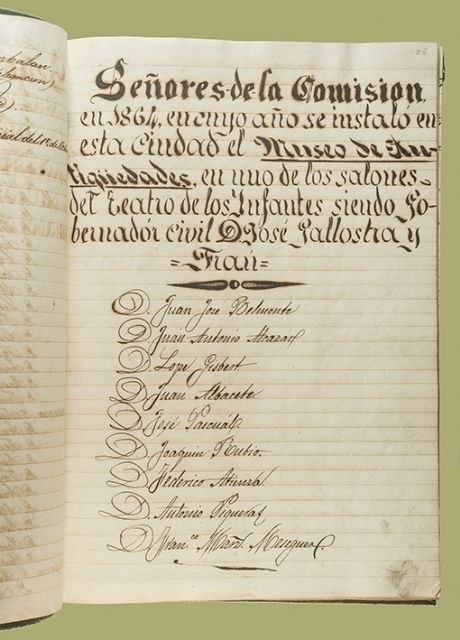 25
Señores de la Comision,
en 1864, en cuyo año se instaló en
esta Ciudad el Museo de An-
tigüedades, en uno de los salones
del Teatro de los Infantes siendo Go-
bernador civil D. José Gallostra y
=Frau=
D. Juan José Belmonte
D. Juan Antonio Alcaraz
D. Lope Gisbert
D. Juan Albacete
D. José Pascual
D. Joaquin Rubio
D. Federico Atienza
D. Antonio Piqueras
D. Fran.co Mart. Meseguer